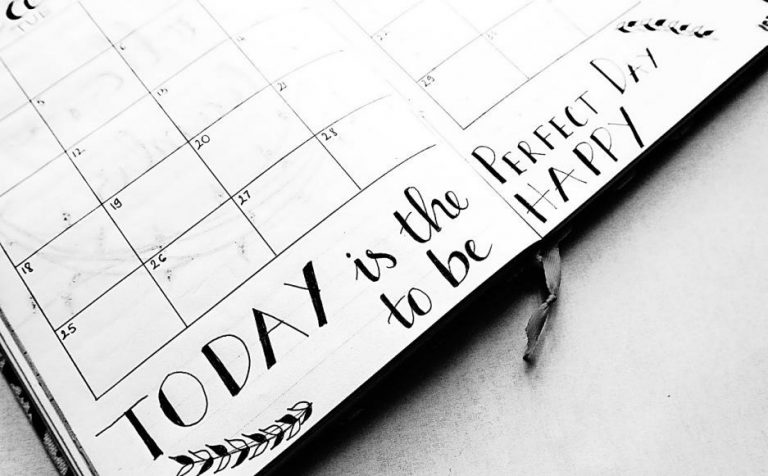 TUE
5 6
12 13 14
18 19 20 21 22
25 26 27 28 29
TODAY is the PERFECT DAY
to be HAPPY